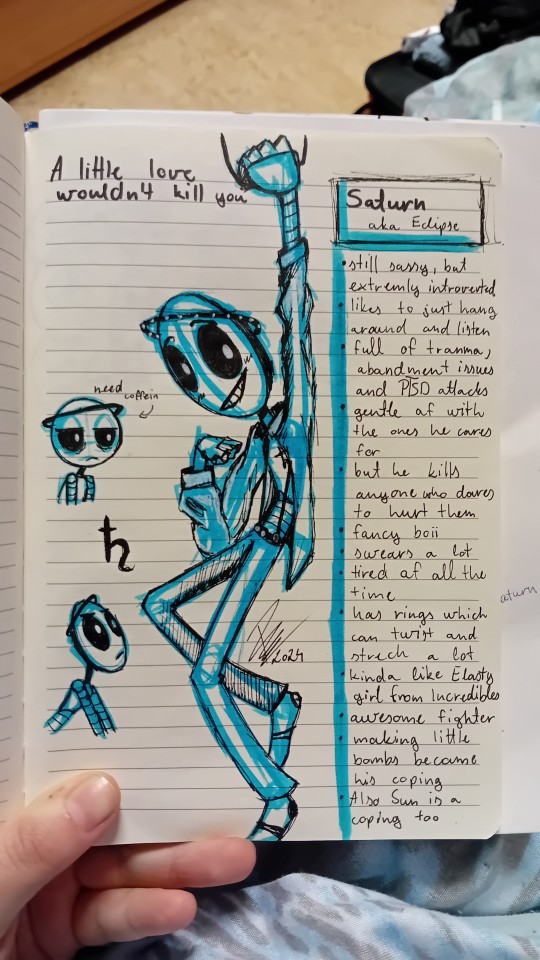 A little love
wouldn4 kill you
Saturn
aka Eclipse
• still sassy, but
extremly introverted
• likes to just hang
around and listen
• full of trauma,
abandment issues
and PTSD attacks
• gentle af with
the ones he cares
for
• but he kills
anyone who dares
to hurt them
• fancy boii
• swears a lot
• tired af all the
time
• has rings which
can twist and
strech a lot
kinda like Elasty
girl from Incredibles
• awesome fighter
• making little
bombs became
his coping
• Also Sun is a
coping too
need
coffein
♄
2024
aturn